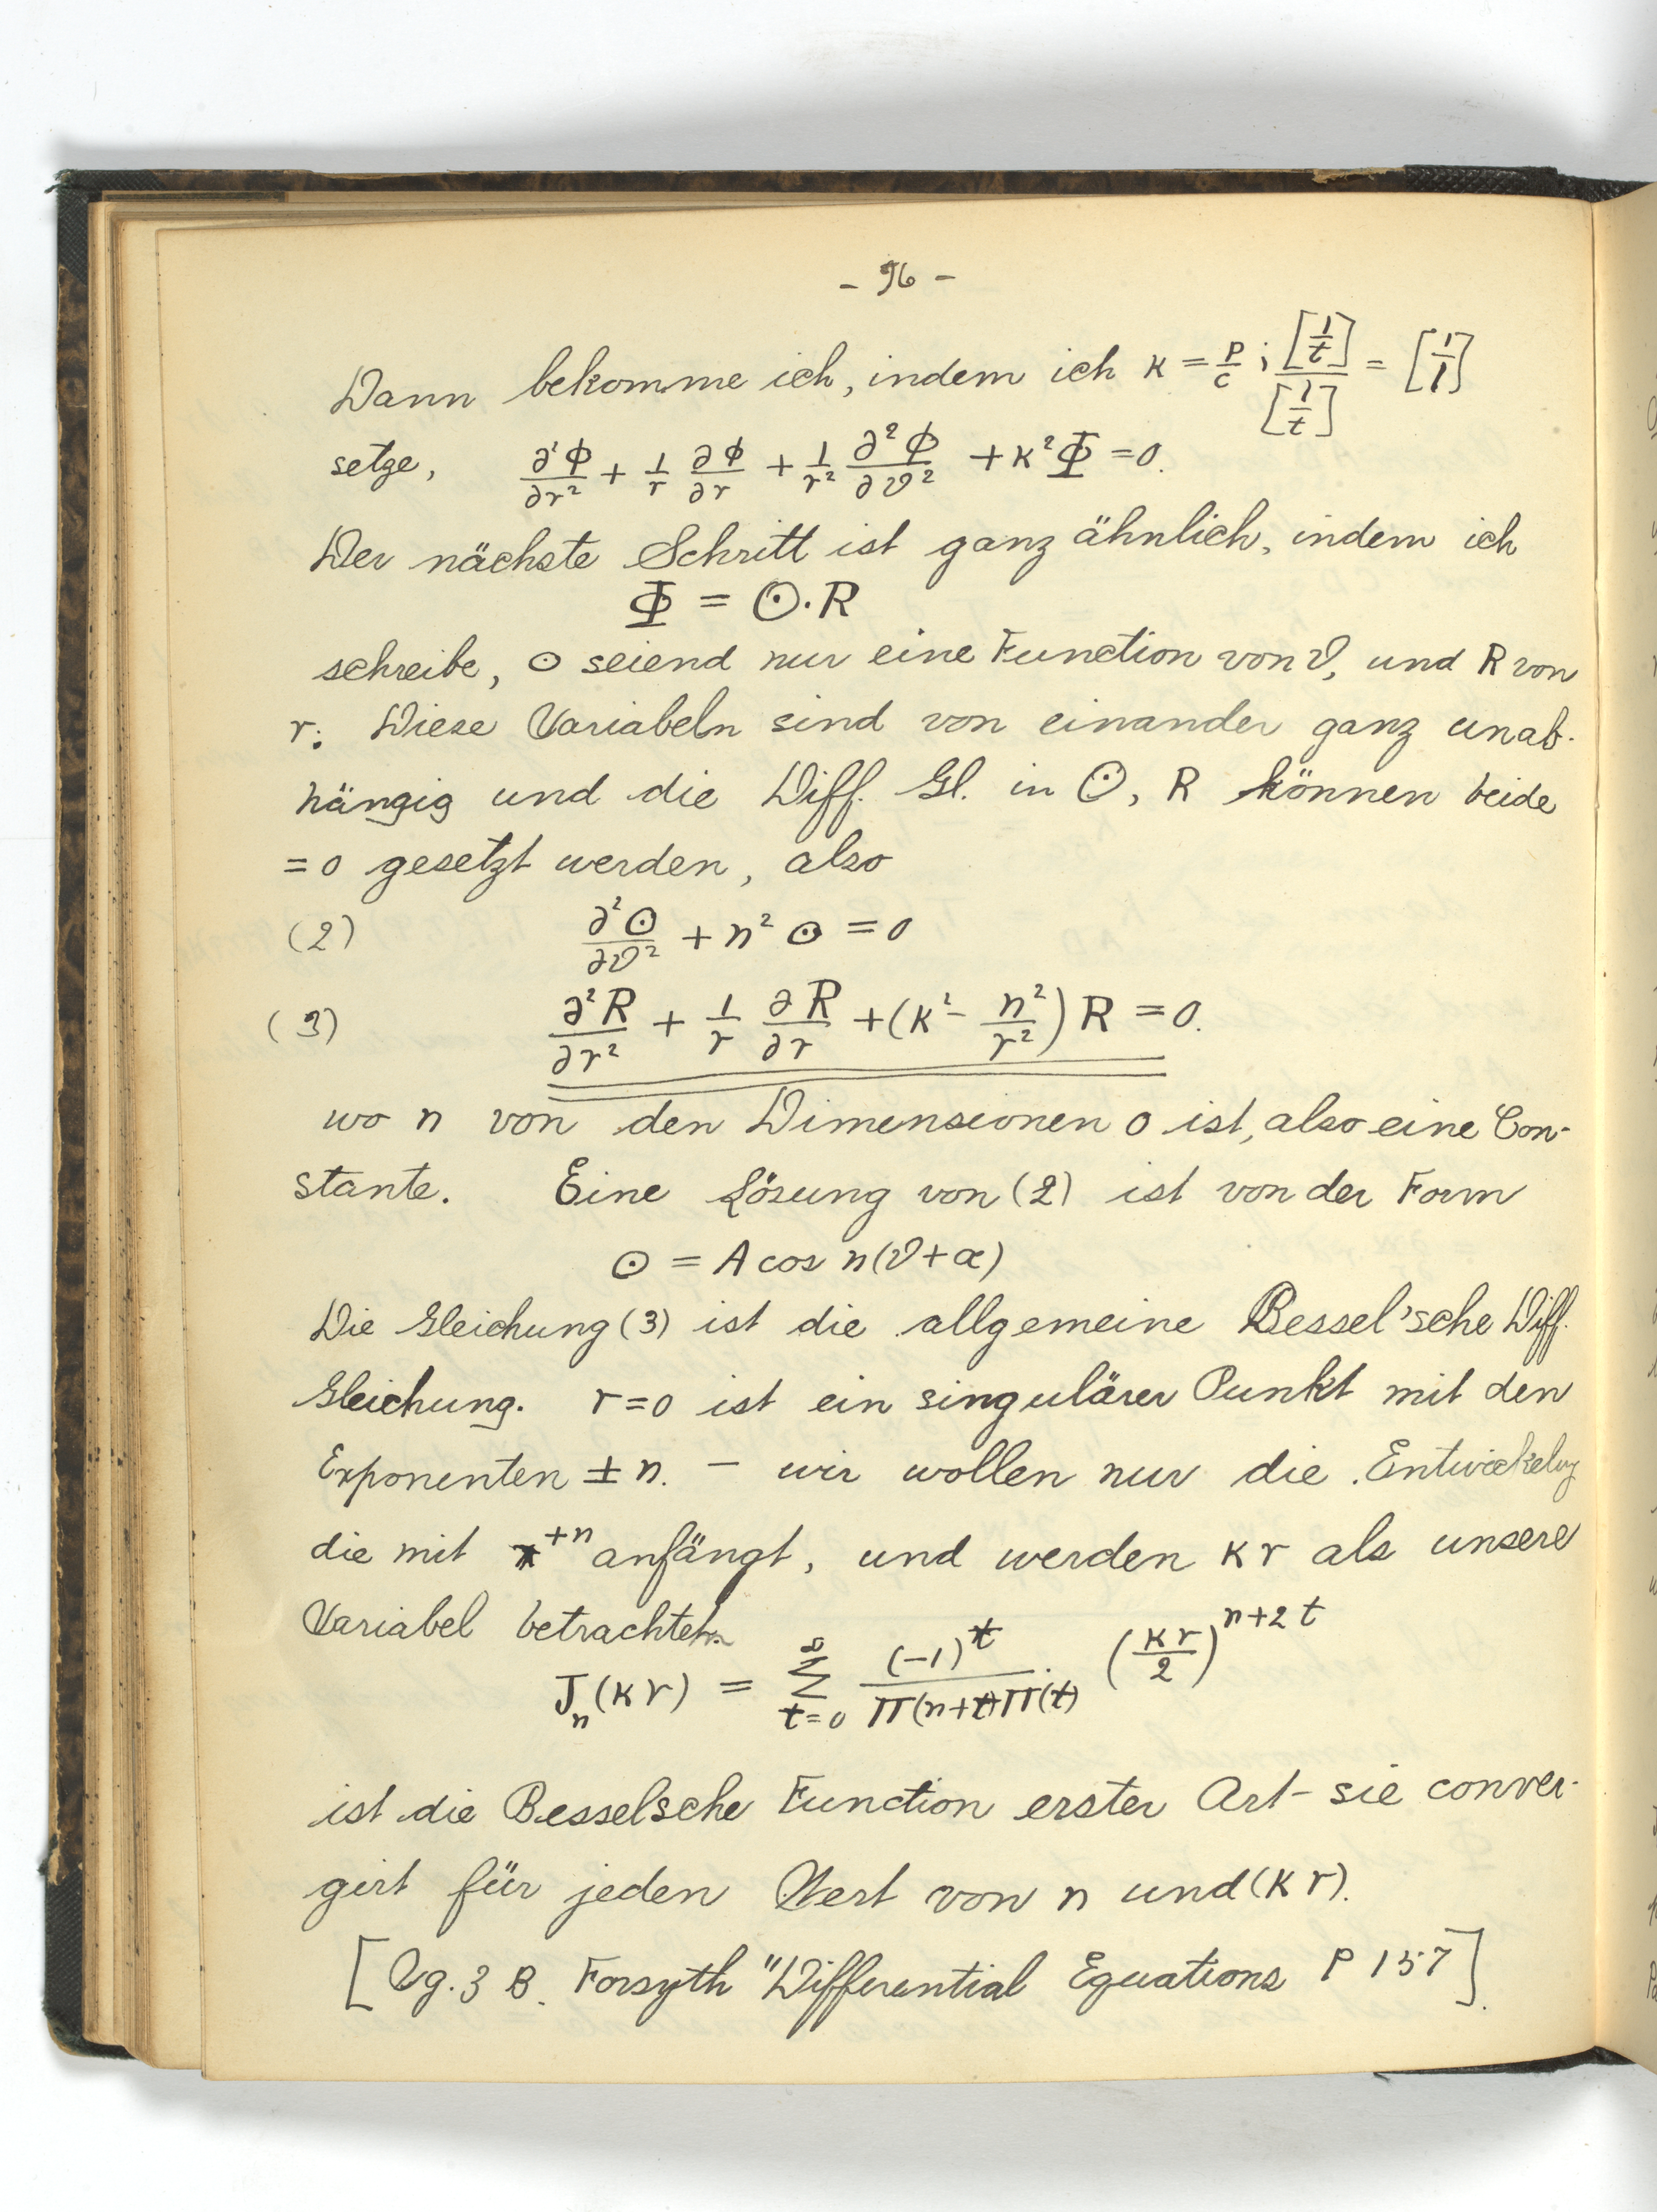 - 96 -
Dann bekomme ich, indem ich κ = p/c ; [1/t]/[1/t] = [1/l]
setze, ∂²Φ/∂r² + 1/r ∂Φ/∂r + 1/r² ∂²Φ/∂ϑ² + κ²Φ = 0.
Der nächste Schritt ist ganz ähnlich, indem ich
Φ = Θ·R
schreibe, Θ seiend nur eine Function von ϑ, und R von
r. Diese Variabeln sind von einander ganz unab-
hängig und die Diff. Gl. in Θ, R können beide
= 0 gesetzt werden, also
(2) ∂²Θ/∂ϑ² + n² Θ = 0
(3) ∂²R/∂r² + 1/r ∂R/∂r + (κ² - n²/r²) R = 0.
wo n von den Dimensionen 0 ist, also eine Con-
stante. Eine Lösung von (2) ist von der Form
Θ = A cos n(ϑ+α)
Die Gleichung (3) ist die allgemeine Bessel'sche Diff.
Gleichung. r=0 ist ein singulärer Punkt mit den
Exponenten ± n. – wir wollen nur die Entwickelung
die mit r⁺ⁿ anfängt, und werden κr als unsere
Variabel betrachten.
Jₙ(κr) = Σ_{t=0}^{∞} (-1)^t / Π(n+t)Π(t) (κr/2)^{n+2t}
ist die Besselsche Function erster Art - sie conver-
girt für jeden Wert von n und (κr).
[Vg. z B. Forsyth "Differential Equations P 157].